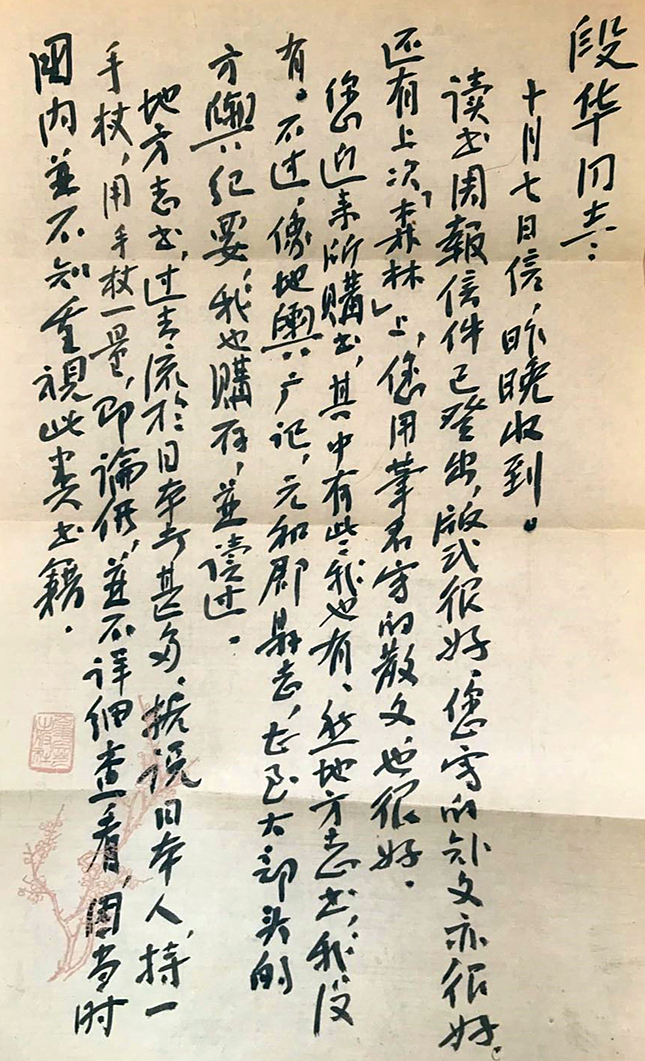 段华同志：
十月七日信，昨晚收到。
读书周报信件已登出，版式很好，您写的补文亦很好。
还有上次「森林」上，您用笔名写的散文，也很好。
您近来所購书，其中有些我也有，然地方志书，我没
有。不过，像地輿广记，元和郡县志，甚至大部头的
方輿纪要，我也購存，並读过。
地方志书，过去流於日本者甚多，据说日本人，持一
手杖，用手杖一量，即論價，並不详细查看，因当时
國内並不知重視此类书籍。